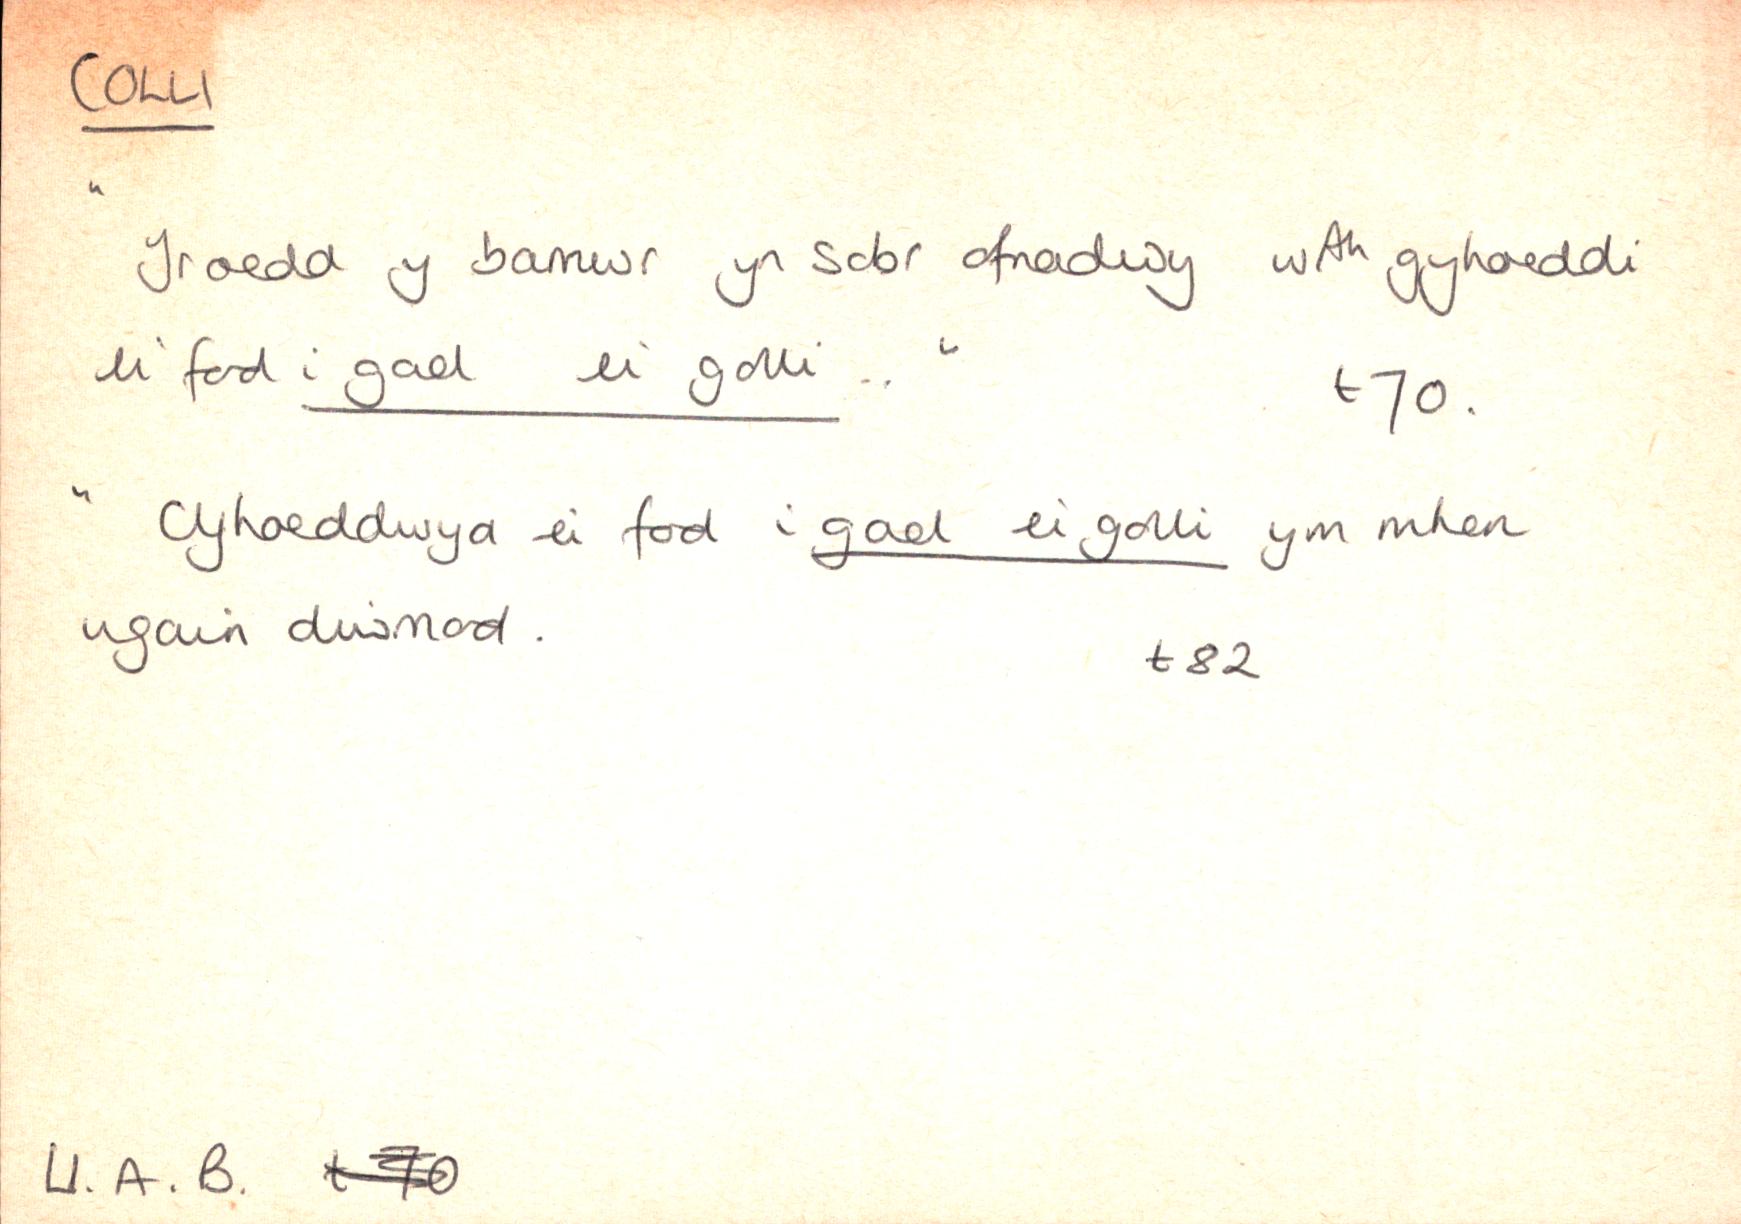 COLLI
"
Yr oedd y barnwr yn sobr ofnadwy wrth gyhoeddi
ei fod i gael ei golli .. "
t 70.
" Cyhoeddwyd ei fod i gael ei golli ym mhen
ugain diwrnod.
t 82
Ll. A. B. t 70